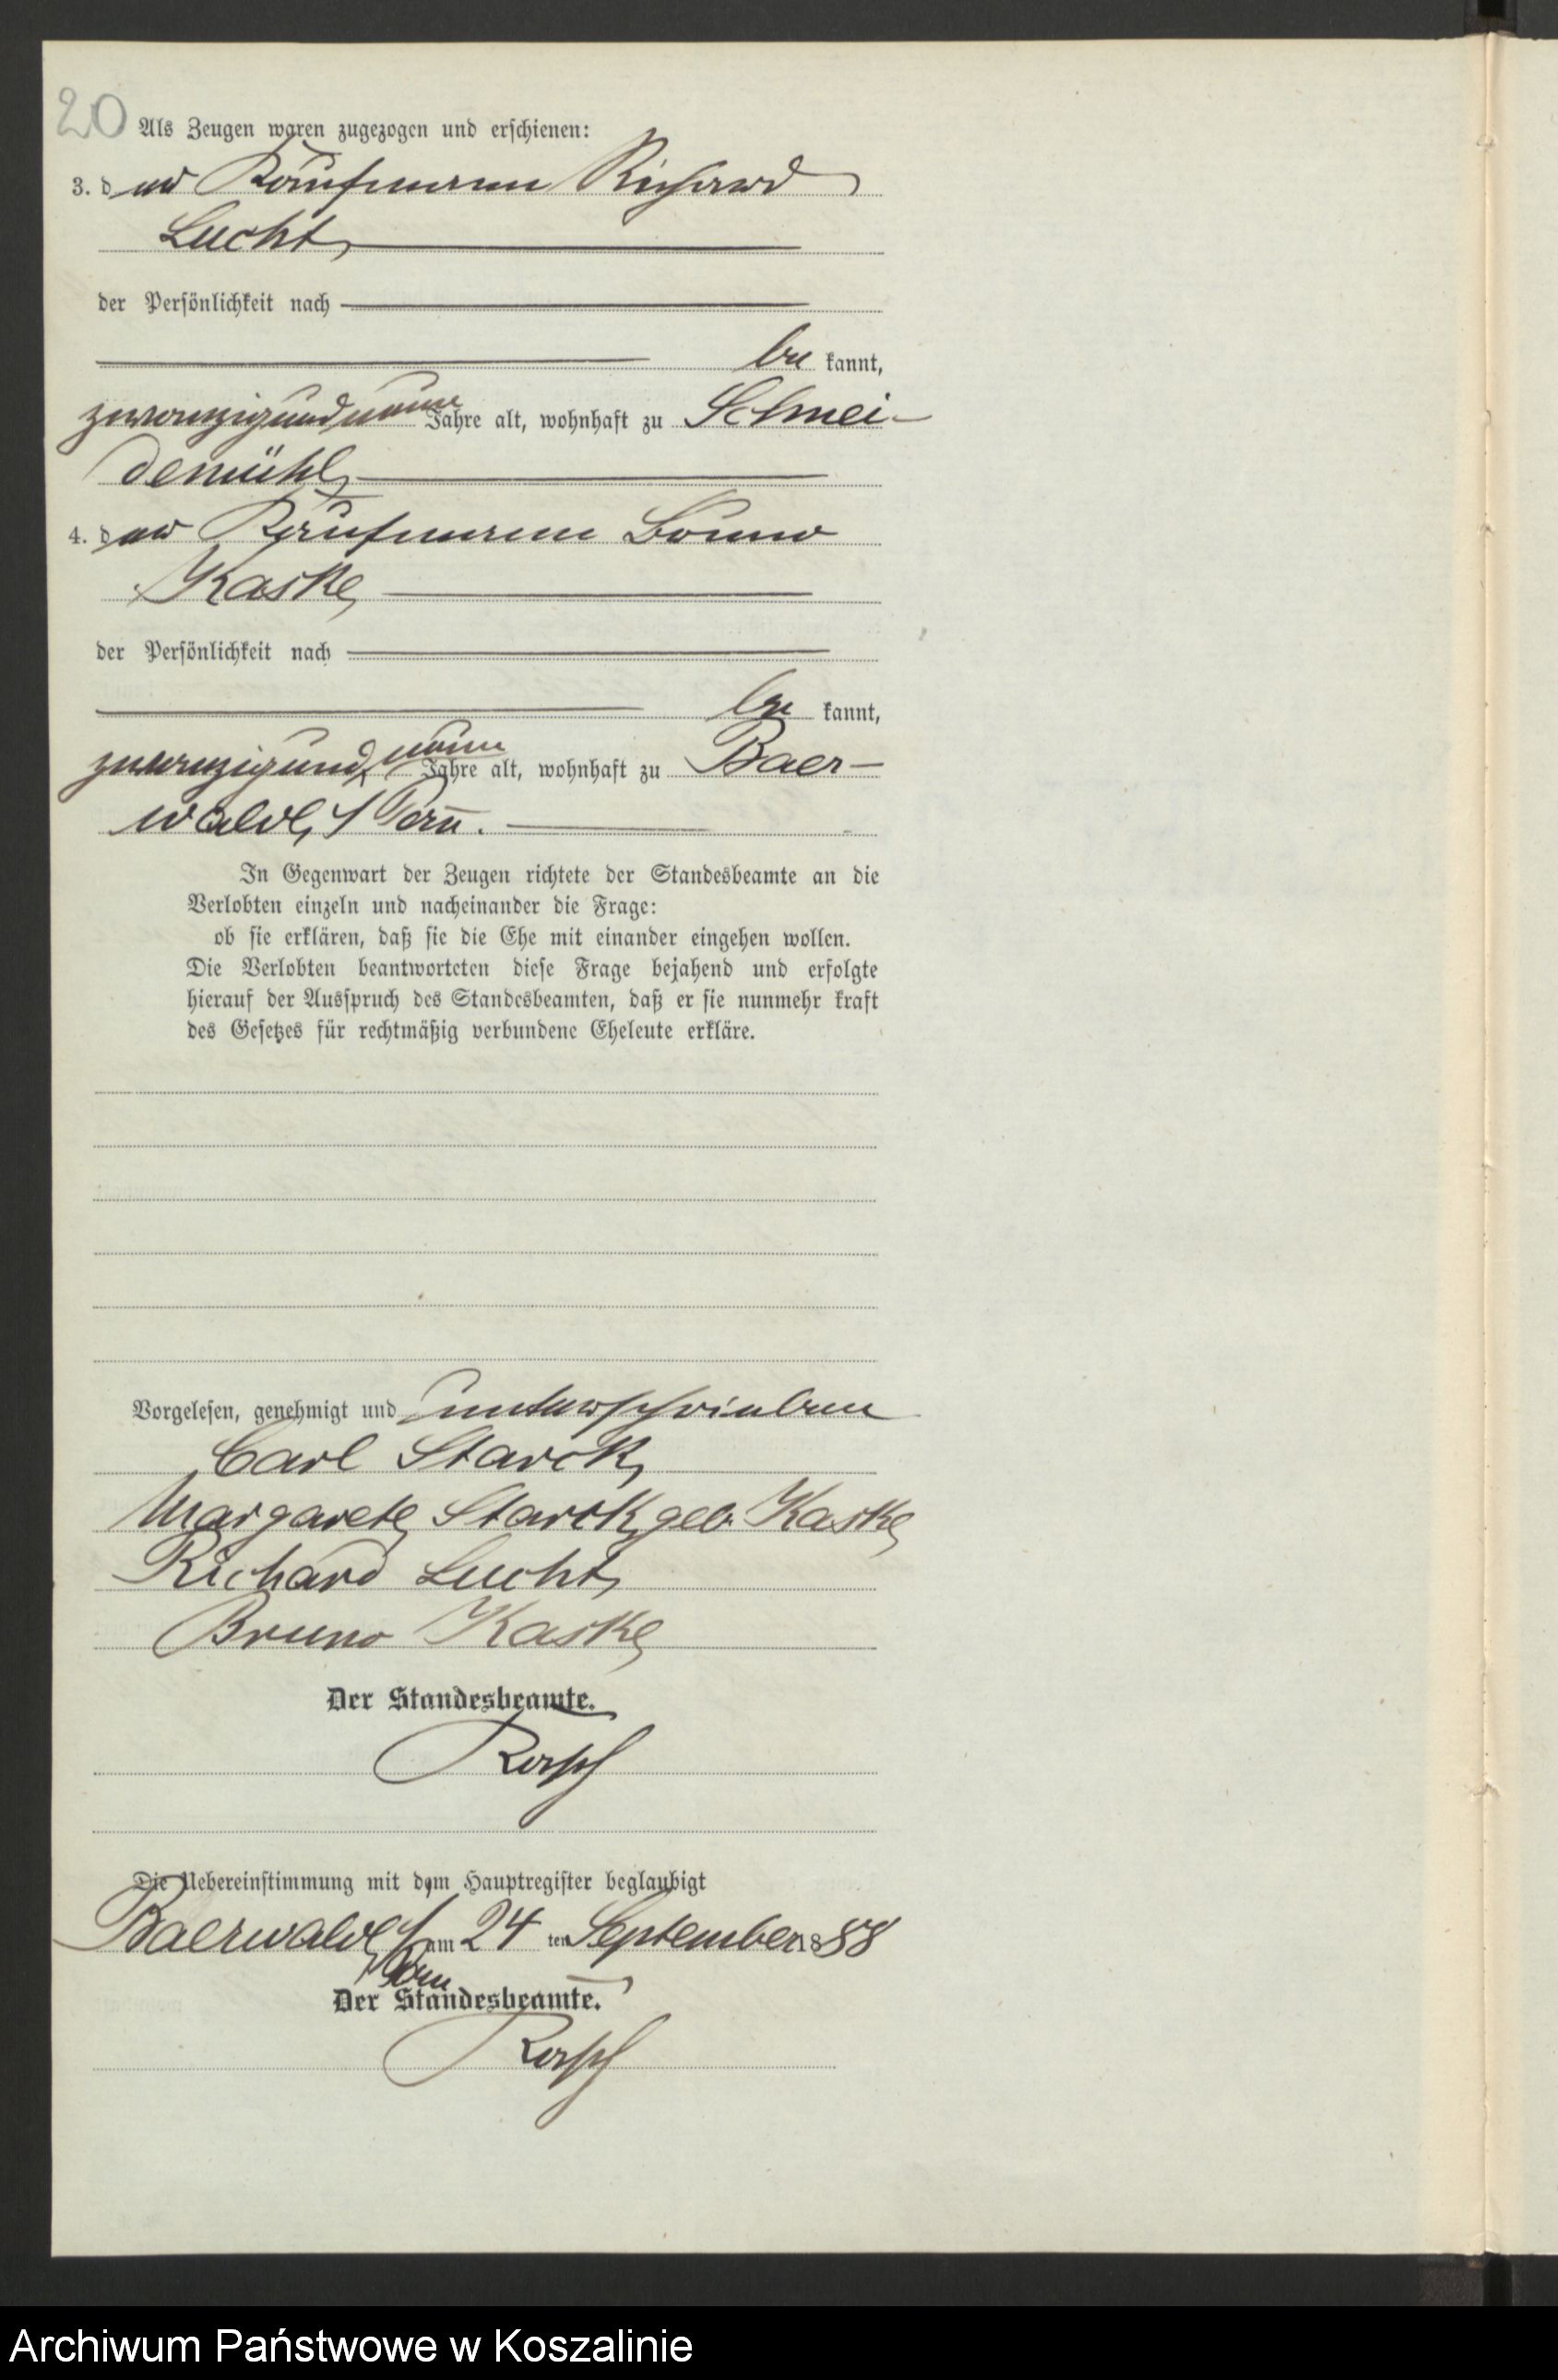 20 Als Zeugen waren zugezogen und erschienen:
3. der Kaufmann Richard
Lucht
der Persönlichkeit nach
be kannt,
zwanzigundneun Jahre alt, wohnhaft zu Schnei-
demühl
4. der Kaufmann Bruno
Kaske
der Persönlichkeit nach
be kannt,
zwanzigund neun Jahre alt, wohnhaft zu Baer-
walde, i/ Pom̄.
In Gegenwart der Zeugen richtete der Standesbeamte an die
Verlobten einzeln und nacheinander die Frage:
ob sie erklären, daß sie die Ehe mit einander eingehen wollen.
Die Verlobten beantworteten diese Frage bejahend und erfolgte
hierauf der Ausspruch des Standesbeamten, daß er sie nunmehr kraft
des Gesetzes für rechtmäßig verbundene Eheleute erkläre.
Vorgelesen, genehmigt und unterschrieben
Carl Starck
Margarete Starck geb. Kaske
Richard Lucht
Bruno Kaske
Der Standesbeamte.
Die Uebereinstimmung mit dem Hauptregister beglaubigt
Baerwalde i/ Pom am 24 ten September 1888
Der Standesbeamte.
Archiwum Państwowe w Koszalinie